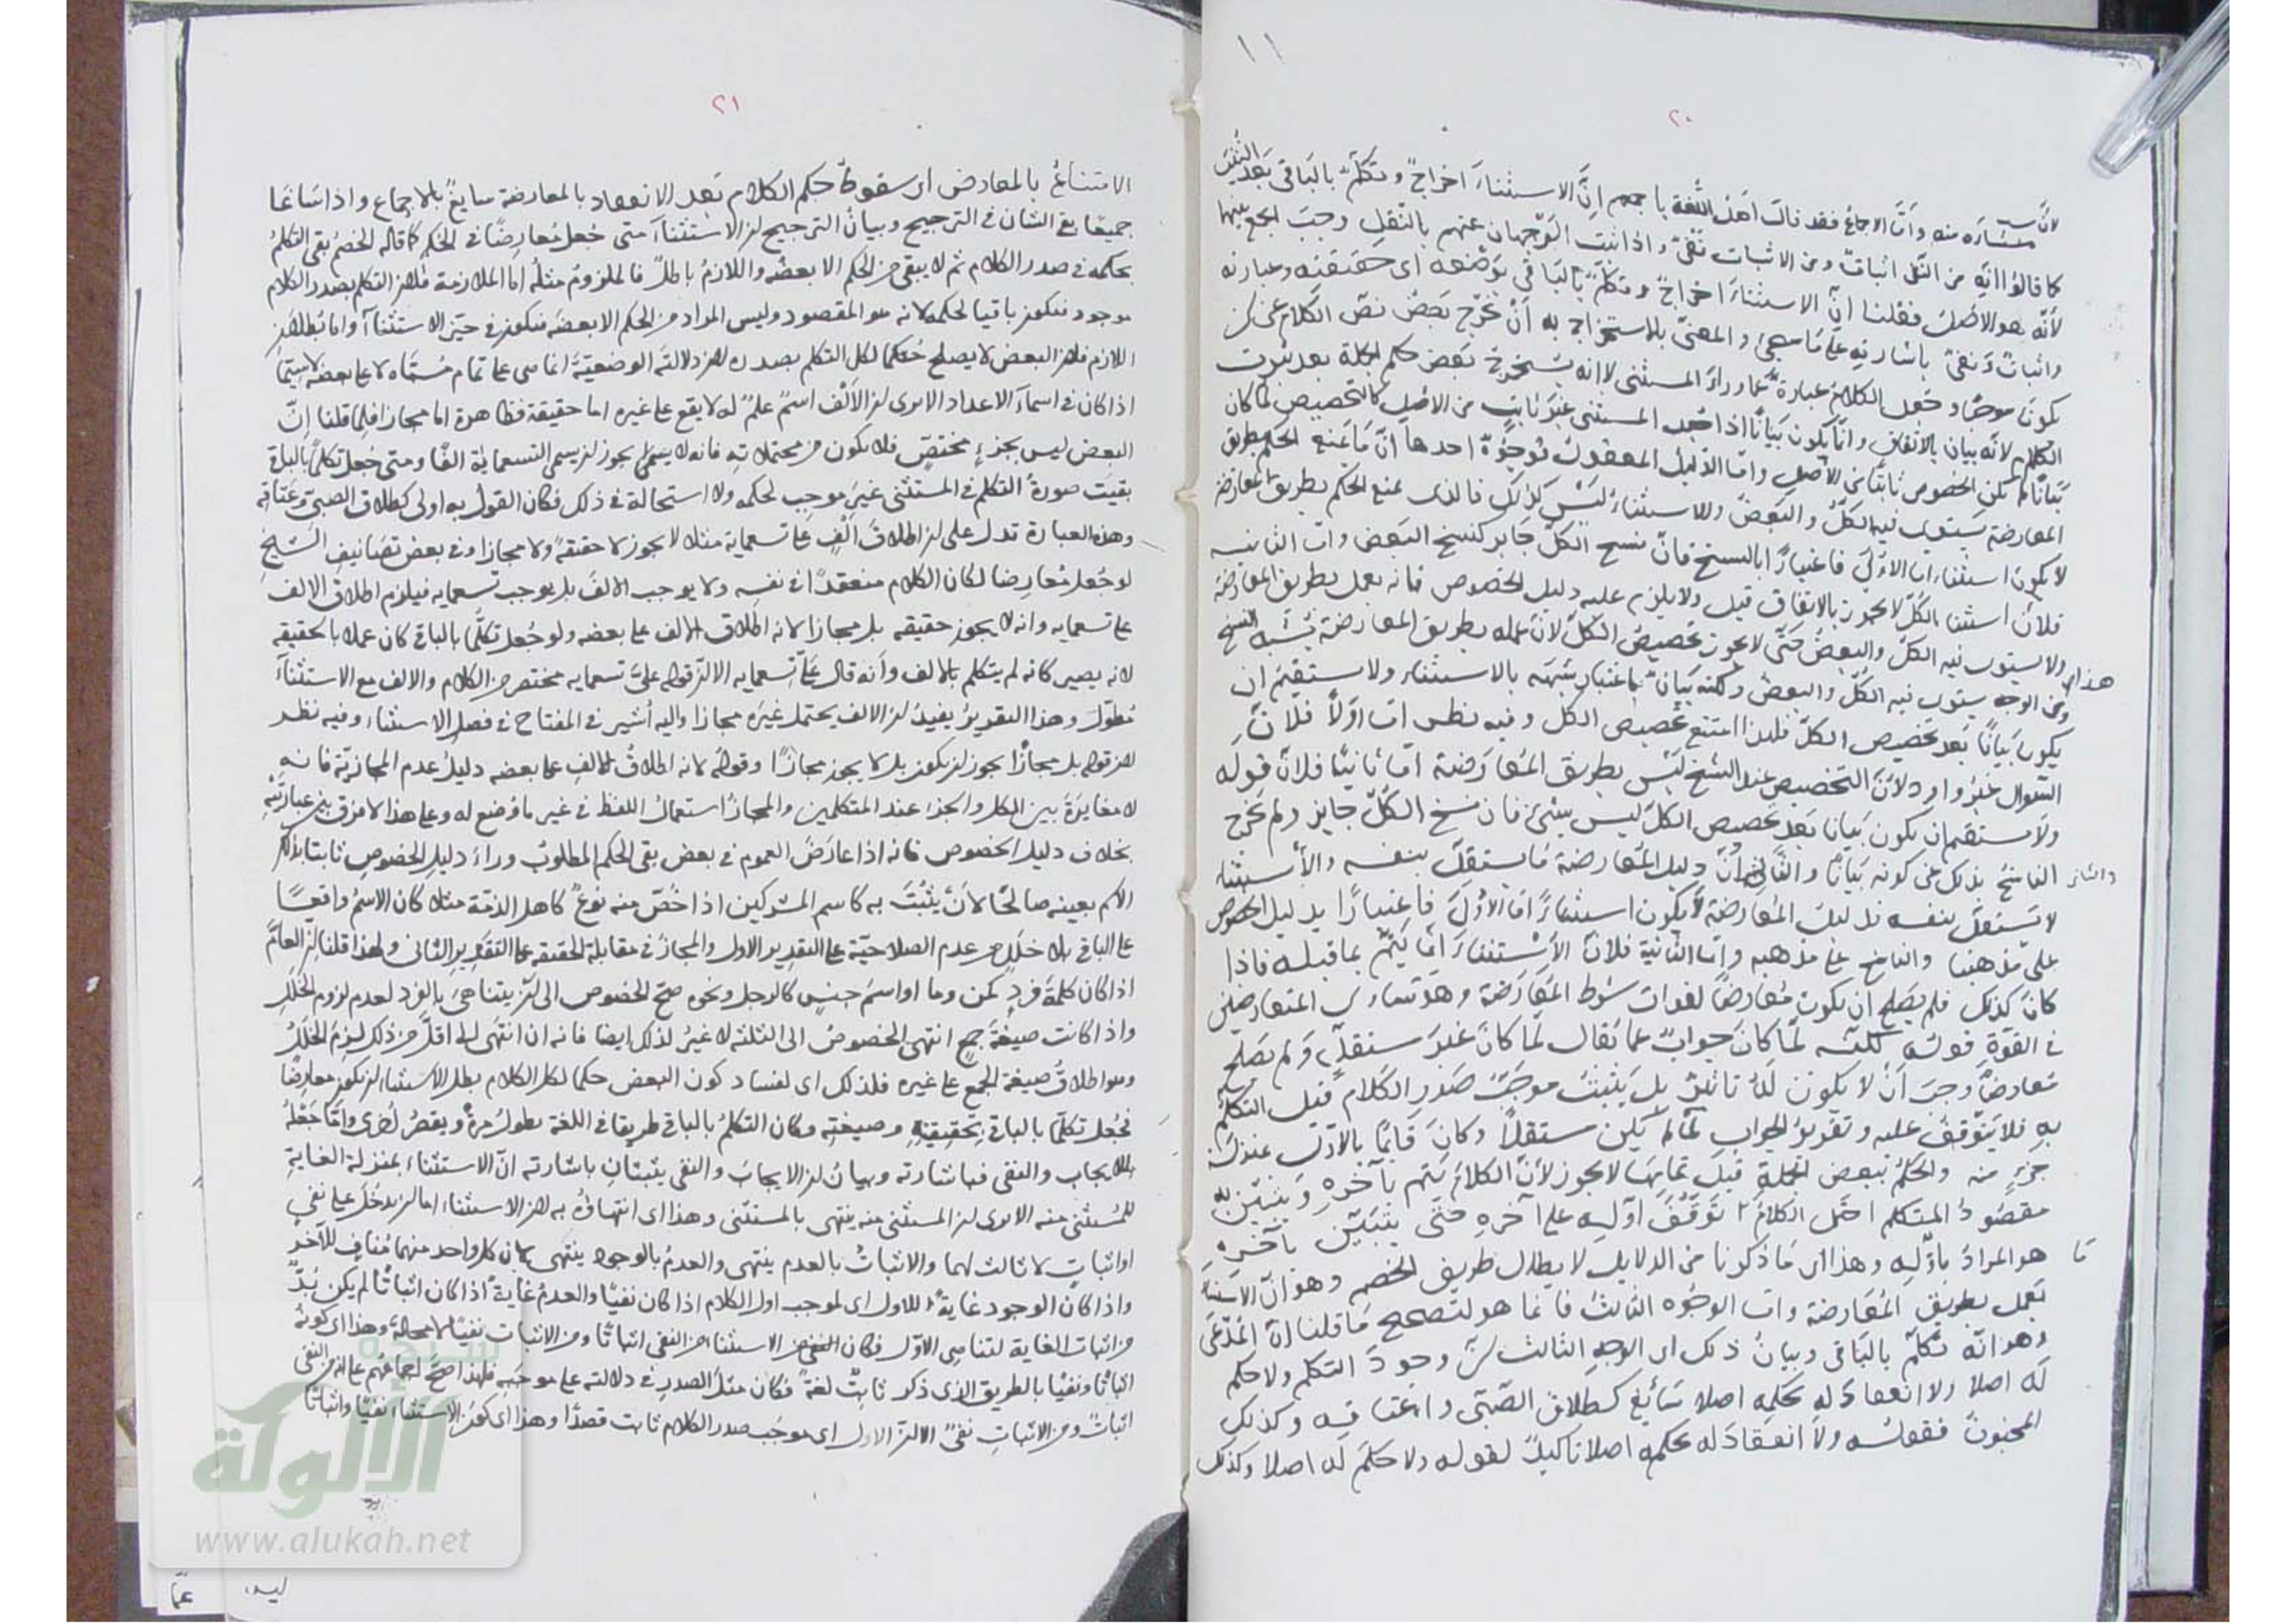 ١١
٢٠
لان
مستثناة منه وأن الاجماع فقد قالت اهل اللغة باجمعهم انّ الاستثناءَ اخراجٌ وتكلّمٌ بالبَاقى بَعد الثنيَا
كما قالوا انه من النفى اثباتٌ ومن الاثبات نفىٌ واذا ثبت الوَجهان عنهم بالنّقلِ وجبَ الجمع بينهما
لأنّه هو الاصلُ فقلنا انّ الاستثناءَ اخراجٌ وتكلّمٌ بالبَاقى بوَضعه اى حَقيقتِه وعبارته
واثباتٌ وَنفىٌ باشارتِه على مَا سيجىء والمعنىّ بالاستخراج به أن يخرج بعضُ نصّ الكلام عن ان
يكونَ موجبًا وجَعل الكلام عبارةً عمّا وراءَ المستثنى لا انه يستخرج بعض حكم الجملة بعد ثبوت
الكلام لانّه بيان بالاتفاق وانّما يكون بَيانًا اذا جُعِل المستثنى غيرَ ثابتٍ من الاصْلِ كالتخصيص لما كان
بَيانًا لم يكن الخصوص ثابتًا من الأصل وامّا الدّليل المعقول فوجُوهٌ احدها انّ مَا يَمنع الحكم بطريق
المعارضة يَستوى فيه الكلُّ والبَعضُ والاستثناءُ ليْسَ كذلك فالذى يمنع الحكم بطريق المعارضة
لا يكون استثناء امّا الاوْلىَ فاعتبارًا بالنسخ فانّ نسخ الكلّ جَايز كنسخ البَعض وامّا الثانيه
فلانّ استثناء الكلّ لا يجوز بالاتفاق قيل ولا يلزم عليه دليل الخصوص فانه يعمل بطريق المعارضة
هذا ولا يستوى فيه الكلّ والبعضُ حَتّى لا يجوز تخصيصُ الكلّ لانّ عمله بطريق المعارضة يشبه النسخ
ومن الوجه يستوى فيه الكلّ والبعض ولكنّه بَيانٌ باعتبار شبَهه بالاستثناء ولا يستقيمُ ان
يكونَ بَيانًا بَعد تخصيص الكلّ فلهذا امتنع تخصيص الكل وفيه نظر امّا اوّلاً فلانّ
السّوال غيرُ واردٍ لانّ التخصيص عند الشيخ ليْسَ بطريق المعَارَضة امّا ثانيًا فلانّ قوله
ولا يستقيم ان يكون بَيانًا بَعد تخصيص الكلّ ليسَ بشئٍ فان نسخ الكُلّ جايز ولم يخرج
الناسخُ بذلك من كونه بَيانًا والثانى انّ دليل المعَارضة مَا يستقلّ بنفسه والأستثناء
لا يَستقلّ بنفسه فدليلُ المعارضة لا يكون استثناءً امّا الاوْلىَ فاعتبارًا بدليل الخصوص
على مذهبنا والناسخ على مذهبه وامّا الثانية فلانّ الأستثناءَ انّما يَتمّ بما قبله فاذا
كانَ كذلك فلم يَصلح ان يكون مُعارضًا لفوات شرط المعَارَضة وهو تساوى المتعارضين
فى القوّة قوله لكنّه لمّا كانَ جوابٌ عمّا يقال لمّا كان غيرَ مستقلٍّ ولم يَصلح
مُعارضًا وجبَ أنْ لا يكون لَهُ تأثيرٌ بل يَثبتُ موجَبُ صَدر الكلام قبل التكلّم
به فلا يَتوقّفُ عليه وتقريرُ الجواب لمّا لم يكن مستقلاًّ وكانَ قَايمًا بالاوّل بمنزلة
جزءٍ منه والحكمُ ببعض الجملة قبلَ تمامها لا يجوز لانّ الكلامَ يَتم بآخره وَيتبيّن به
مقصودُ المتكلم احتمل الكلامُ تَوقّفَ اوّله على آخره حَتّى يَتبيّن بآخره
هو المرادُ باوّلِه وهذا اى مَا ذكرنا من الدلايل لابطال طريق الخصم وهو انّ الاستثناء
يَعمل بطريق المُعَارضة وامّا الوجُوه الثالثُ فانّما هو لتصحيح مَا قلنا انّ المدّعَى
وهو انّه تكلّمٌ بالبَاقى وبيانُ ذلك اى الوجهِ الثالث انّ وجودَ التكلّم ولا حكم
لَه اصلا ولا انعقادَ له بحكمه اصلا سَائغ كطلاق الصّبى واعتاقه وكذلك
المجنون فقوله ولا انعقادَ له بحكمه اصلا تأكيدٌ لقوله ولا حكم له اصلا وكذلك
٢١
الامتناعُ بالمعارض اى سقوطُ حكم الكلام بَعد الانعقاد بالمعارضة سايغٌ بالاجماع واذا سَاغا
جميعًا بقى الشان فى الترجيح وبيانُ الترجيح ان الاستثناءَ متى جُعل مُعارِضًا فى الحُكمِ كما قاله الخصْمُ بقى التكلمُ
بحكمه فى صدر الكلام ثم لا يبقى من الحكم الا بعضُه واللازمُ باطلٌ فالملزومُ مثلُه اما الملازمة فلان التكلم بصدر الكلام
موجود فيكون باقيا لحكمه لانه هو المقصود وليس المراد من الحكم الا بعضَه فيكون فى حيّز الاستثناءِ واما بُطلان
اللازم فلان البعض لا يصلح حُكمًا لكل التكلم بصدره لان دلالتَه الوضعيّةَ انما هى على تمام مُسَمَّاه لا على بعضه لاسيّمَا
اذا كان فى اسماءَ الاعداد الا يرى ان الاَلْف اسمٌ علمٌ له لا يقع على غيره اما حقيقة فظاهرة اما مجازا فلِمَا قلنا انّ
البعض ليس بجزءٍ مختصٍّ فلا يكون من محتملاته فانه لا يجوز ان يسمى التسعماية الفًا ومتى جُعل تكلمًا بالباقى
بقيَت صورةُ التكلم فى المستثنى غيرَ موجب لحكمه ولا استحالة فى ذلك فكان القولُ به اولى كطلاق الصبىّ وعَتاقه
وهذه العبارة تدل على ان اطلاقَ الفٍ على تسعماية مثلا لا يجوز لا حقيقةً ولا مجازا وفى بعض تصَانيف الشيخِ
لو جُعل مُعارِضا لكان الكلام منعقدًا فى نفسِه ولا يوجب الالفَ بل يوجب تسعمايه فيلزم اطلاق الالف
على تسعمايه وانه لا يجوز حقيقه بل مجازا لانه اطلاق الالف على بعضه ولو جُعل تكلّمًا بالباقى كان عملا بالحقيقه
لانه يصير كانه لم يتكلم بالالف وأنه قال علىّ تسعمايه الا انّ قوله علىّ تسعمايه مختصر من الكلام والالف مع الاستثناءَ
مُطوّل وهذا التقريرُ يفيدُ ان الالف يحتمل غيرَه مجازا واليه أشير فى المفتاح فى فصل الاستثناء وفيه نظر
لان قوله بل مجازًا يجوز ان يكون بل لا يجوز مجازًا وقولُه لانه اطلاقُ الالفِ على بعضه دليلُ عدم المجازيّة فانه
لا مغايرَةَ بين الكل والجزء عند المتكلمين والمجازُ استعمالُ اللفظ فى غير ما وُضع له وعلى هذا لا فرق بين عبارتَيْه
بخلاف دليل الخصوص فانه اذا عارَضَ العموم فى بعض بقى الحكم المطلوبُ وراءَ دليلِ الخصوصِ ثابتا بذلك
الاسم بعينه صالحًا لانْ يثبُتَ به كاسم المشركين اذا خُصّ منه نوعٌ كاهل الذمّة مثلا كان الاسمُ واقعًا
على الباقى بلا خلَلٍ من عدم الصلاحيّة على التقدير الاول والمجازِ فى مقابلة الحقيقه على التقديرِ الثانى ولهذا قلنا ان العامَّ
اذا كان كلمةَ فردٍ كمَن وما او اسمَ جنسٍ كالرجل ونحوه صحّ الخصوص الى ان يتناهىَ بالفرد لعدم لزوم الخللِ
واذا كانت صيغةَ جمعٍ انتهى الخصوصُ الى الثلثه لا غيرُ لذلك ايضا فانه ان انتهَى الى اقلَّ من ذلك لزِمَ الخلَلُ
وهو اطلاقُ صيغة الجمع على غيره فلذلك اى لفساد كون البعض حكما لكل الكلام بطل الاستثناء ان يكون معارِضًا
فجُعل تكلمًا بالباقى بحقيقته وصيغتِه وكان التكلمُ بالباقى طريقا فى اللغة يطولُ مرةً ويقصُر اُخرى وامّا جَعْلُه
للايجاب والنفى فباشارته وبيانُ ان الايجابَ والنفى يثبتانِ باشارته انّ الاستثناء بمنزلة الغايةِ
للمُستثنى منه الا يرى ان المستثنى منه ينتهى بالمستثنى وهذا اى انتهاؤُه به لان الاستثناء اما ان يدخُلَ على نفىٍ
او اثباتٍ لا ثالث لهما والاثباتُ بالعدم ينتهى والعدمُ بالوجود ينتهى لان كل واحد منهما مُنافٍ للآخر
واذا كان الوجود غايةً للاول اى لموجب اول الكلام اذا كان نفيًا والعدمُ غايةً اذا كان اثباتًا لم يكن بُدٌّ
من اثبات الغاية لتناهى الاوّل فكان الاستثناء من النفى اثباتًا ومن الاثبات نفيًا لا محالةَ وهذا اى كونُه
اثباتًا ونفيًا بالطريق الذى ذكر ثابتٌ لغةً فكان مثلَ الصدرِ فى دلالته على موجَبِه فلهذا صحّ اجماعُهم على انه من النفى
اثباتٌ ومن الاثباتِ نفىٌ الا انّ الاول اى موجَب صدر الكلام ثابت قصدًا وهذا اى كون الاستثناء نفيًا واثباتًا
شبكة
الألوكة
www.alukah.net